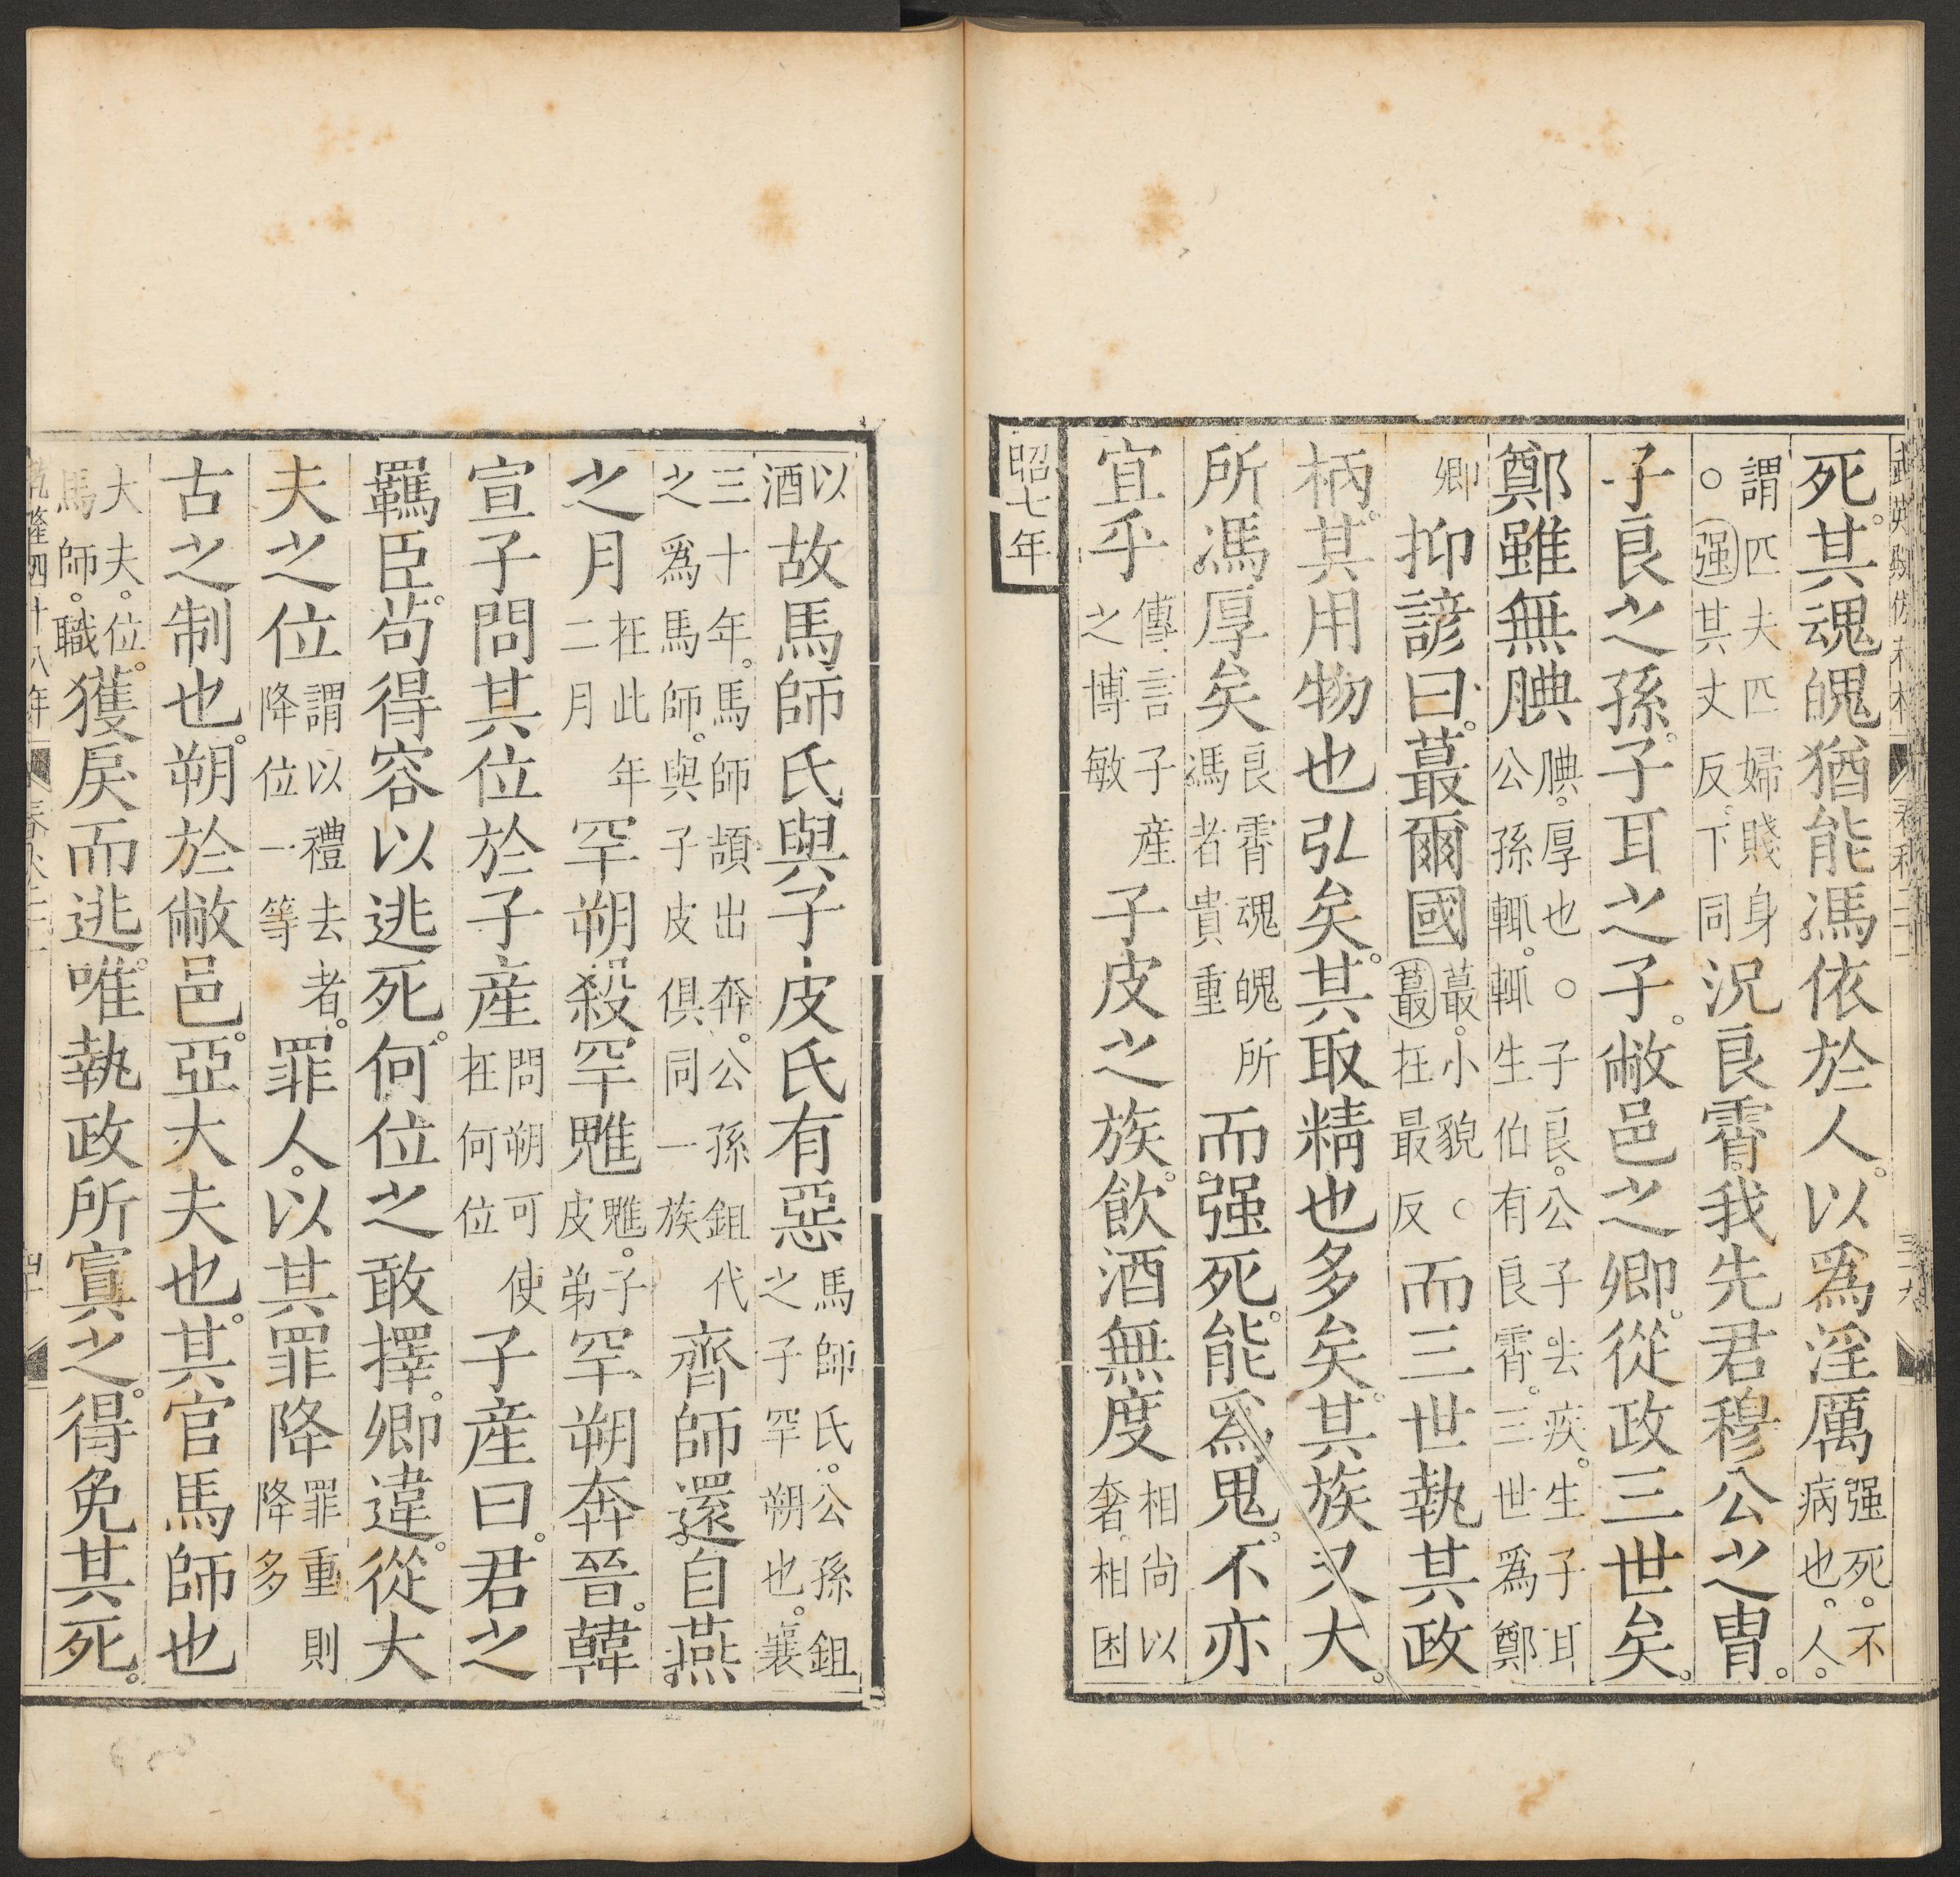 死其魂魄猶能馮依於人以爲淫厲强死不病也人
謂匹夫匹婦賤身○强其丈反下同況良霄我先君穆公之冑
子良之孫子耳之子敝邑之卿從政三世矣
鄭雖無腆腆厚也○子良公子去疾生子耳公孫輒輒生伯有良霄三世爲鄭
卿抑諺曰蕞爾國蕞小貌○蕞在最反而三世執其政
柄其用物也弘矣其取精也多矣其族又大
所馮厚矣良霄魂魄所馮者貴重而强死能爲鬼不亦
宜乎傳言子產之博敏子皮之族飲酒無度相尚以奢相困
昭七年
以酒故馬師氏與子皮氏有惡馬師氏公孫鉏之子罕朔也襄
三十年馬師頡出奔公孫鉏代之爲馬師與子皮俱同一族齊師還自燕
之月在此年二月罕朔殺罕魋魋子皮弟罕朔奔晉韓
宣子問其位於子產問朔可使在何位子產曰君之
羈臣苟得容以逃死何位之敢擇卿違從大
夫之位謂以禮去者降位一等罪人以其罪降罪重則降多
古之制也朔於敝邑亞大夫也其官馬師也
大夫位馬師職獲戾而逃唯執政所寘之得免其死
乾隆四十八年